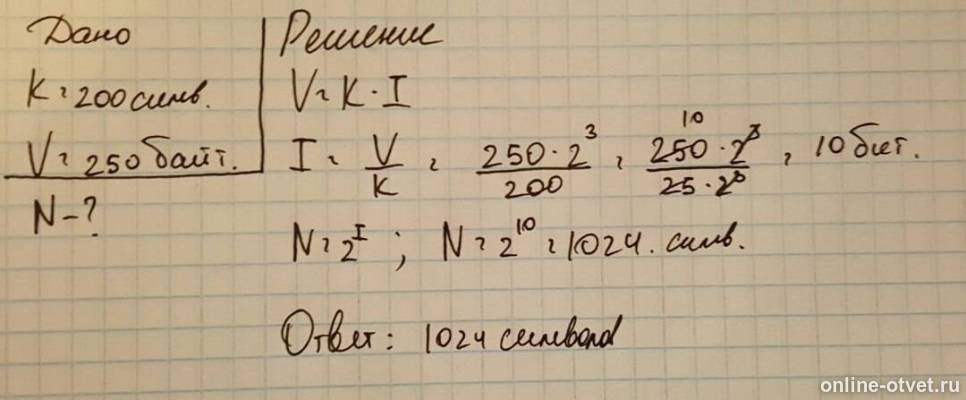 Дано
K = 200 симв.
V = 250 байт.
N - ?
Решение
V = K · I
I = V/K = 250 · 2³/200 = 250 · 2³/25 · 2³ = 10 бит.
10
N = 2^I ; N = 2^10 = 1024. симв.
Ответ: 1024 символа
online-otvet.ru